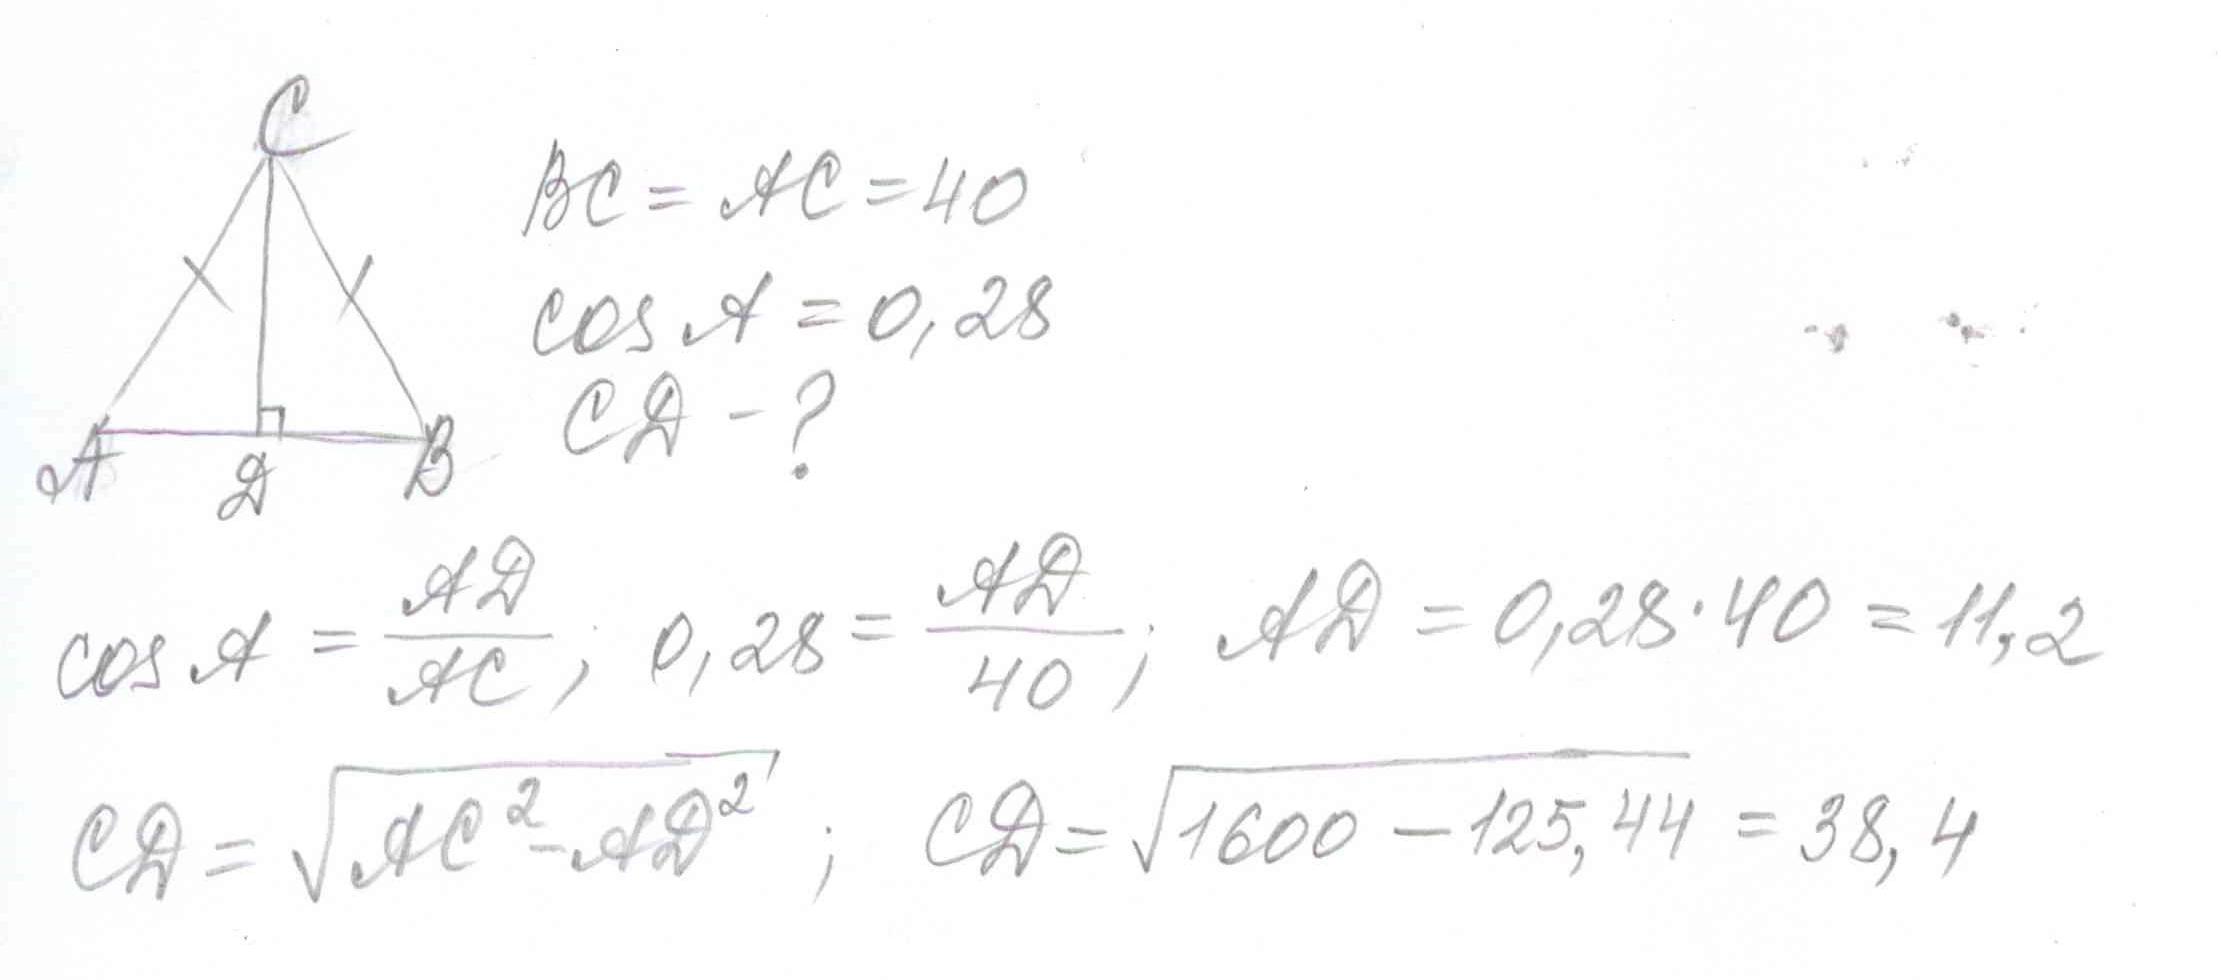 C
A
D
B
BC = AC = 40
cos A = 0,28
CD - ?
cos A = AD/AC; 0,28 = AD/40; AD = 0,28·40 = 11,2
CD = √(AC² - AD²); CD = √(1600 - 125,44) = 38,4